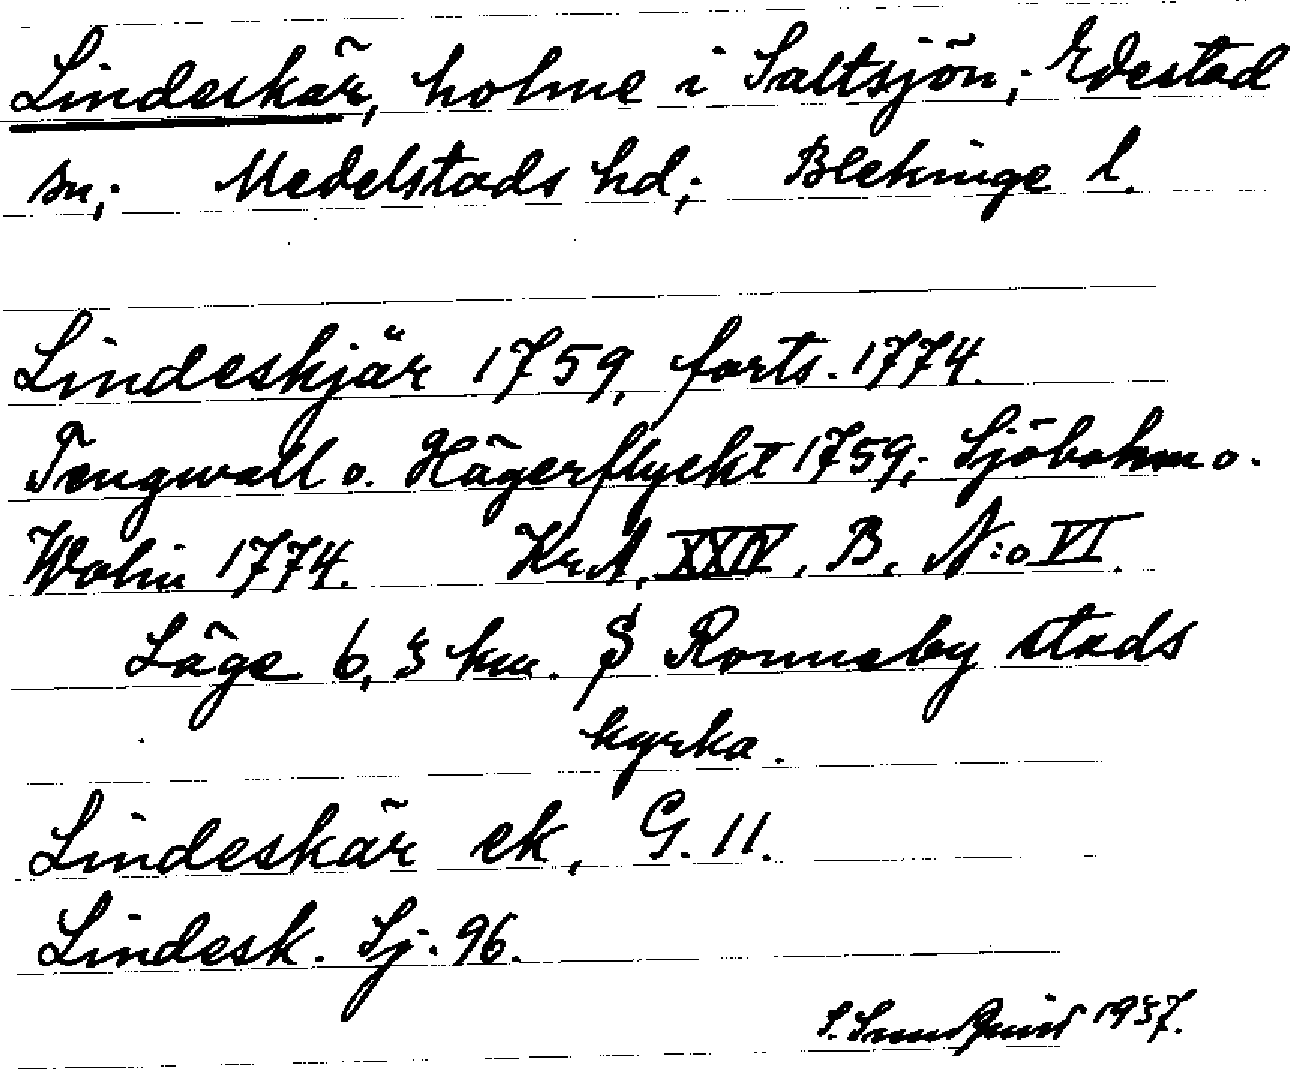 Lindeskär, holme i Saltsjön; Edestad
sn; Medelstads hd; Blekinge l.
Lindeskjär 1759, forts. 1774.
Tengwall o. Hägerflycht 1759; Sjöbohm o.
Wolin 1774. Kr.A. XXIV, B, N:o VI.
Läge 6,3 km. S Ronneby stads
kyrka.
Lindeskär ek, G. 11.
Lindesk. Sj. 96.
S. Sundquist 1937.